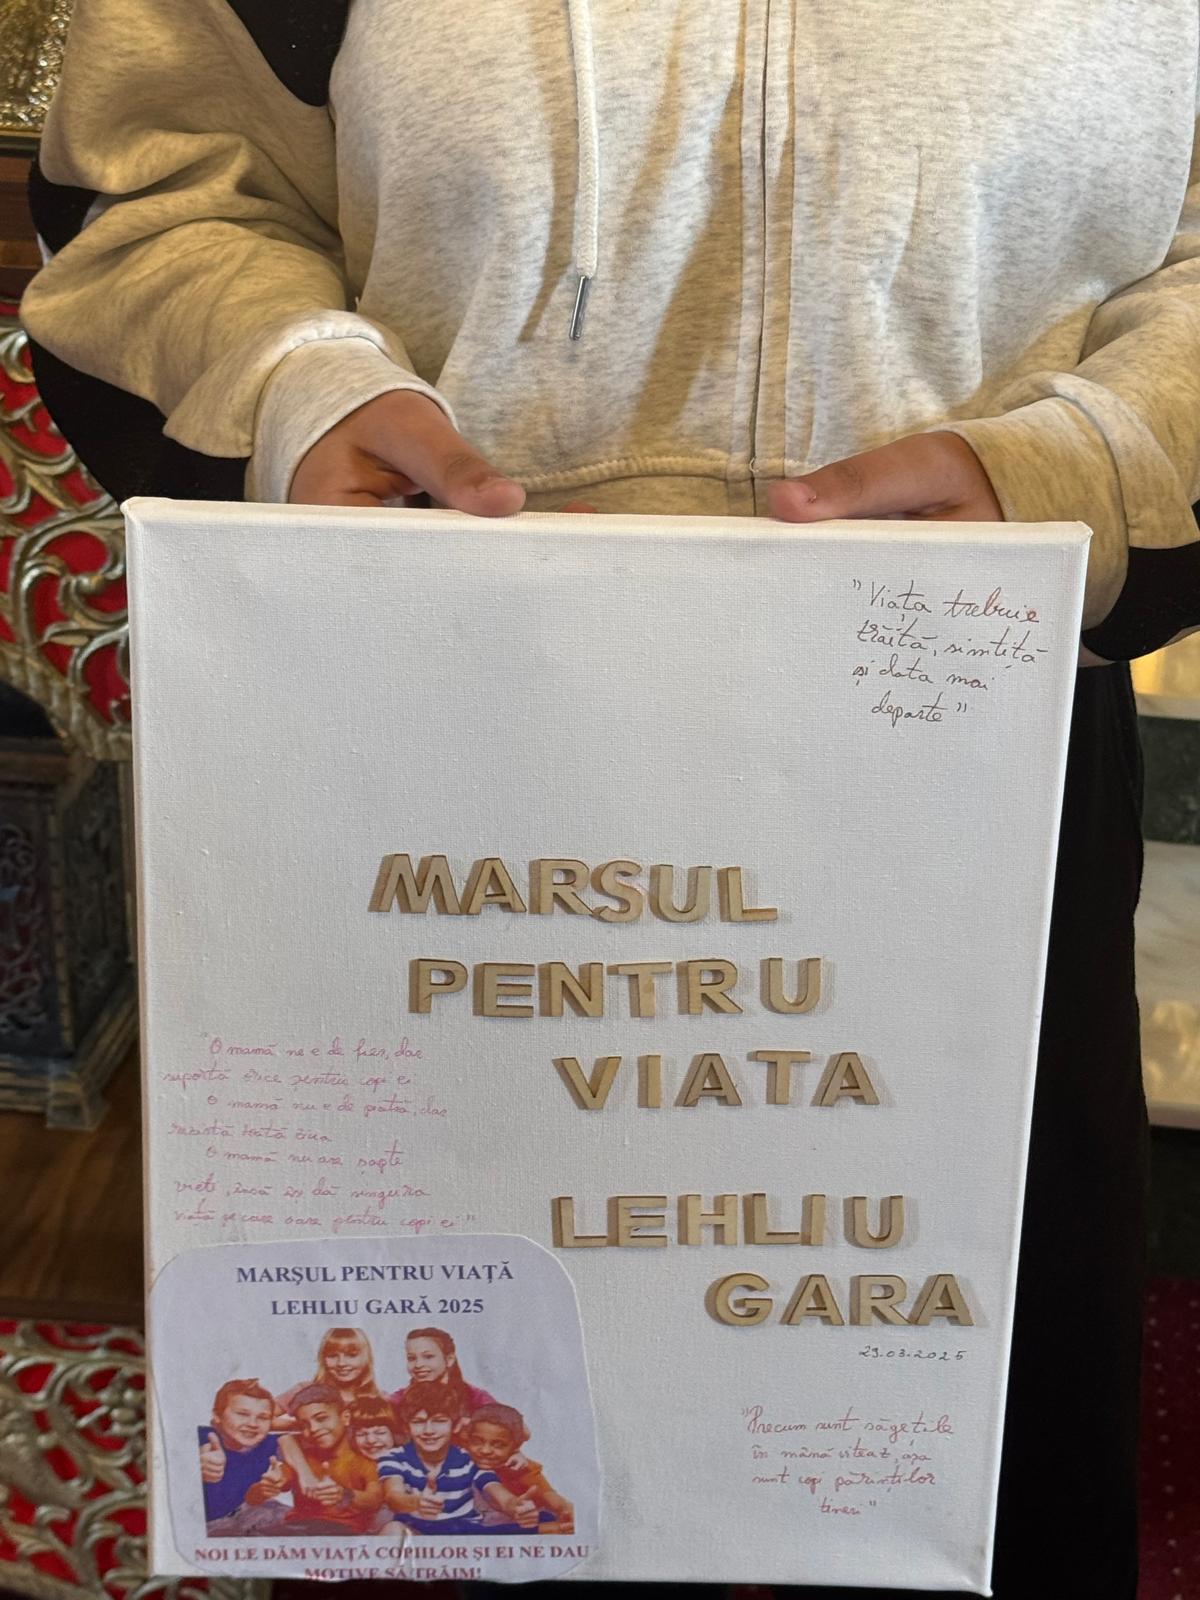 "Viața trebuie
trăită, simțită
și data mai
departe"
MARSUL
PENTRU
VIATA
LEHLIU
GARA
29.03.2025
"O mamă ne e de fier, dar
suportă orice pentru copi ei
O mamă nu e de piatră, dar
rezistă toată ziua
O mamă nu are șapte
vieți, însă își dă singura
viață pe care oare pentru copi ei"
MARŞUL PENTRU VIAŢĂ
LEHLIU GARĂ 2025
NOI LE DĂM VIAŢĂ COPIILOR ŞI EI NE DAU
MOTIVE SĂ TRĂIM!
"Precum sunt săgețile
în mână viteaz, așa
sunt copi părinților
tineri"